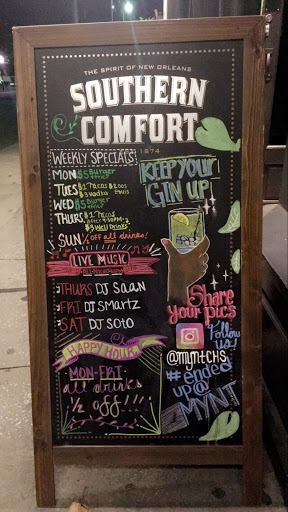 THE SPIRIT OF NEW ORLEANS
SOUTHERN
COMFORT
1874
WEEKLY SPECIALS
MON $5 Burger
TUES $1 Tacos
$3 vodka
WED $5 Burger
THURS $1 Tacos
$3 Well Drinks
SUN ½ OFF all drinks!
LIVE MUSIC
THURS DJ SAAN
FRI DJ SMartz
SAT DJ SOTO
HAPPY HOUR
MON-FRI
all drinks
½ off!!!
KEEP YOUR
GIN UP!
Share
your pics
Follow
us!
@myntchs
#ended
up@
MYNT